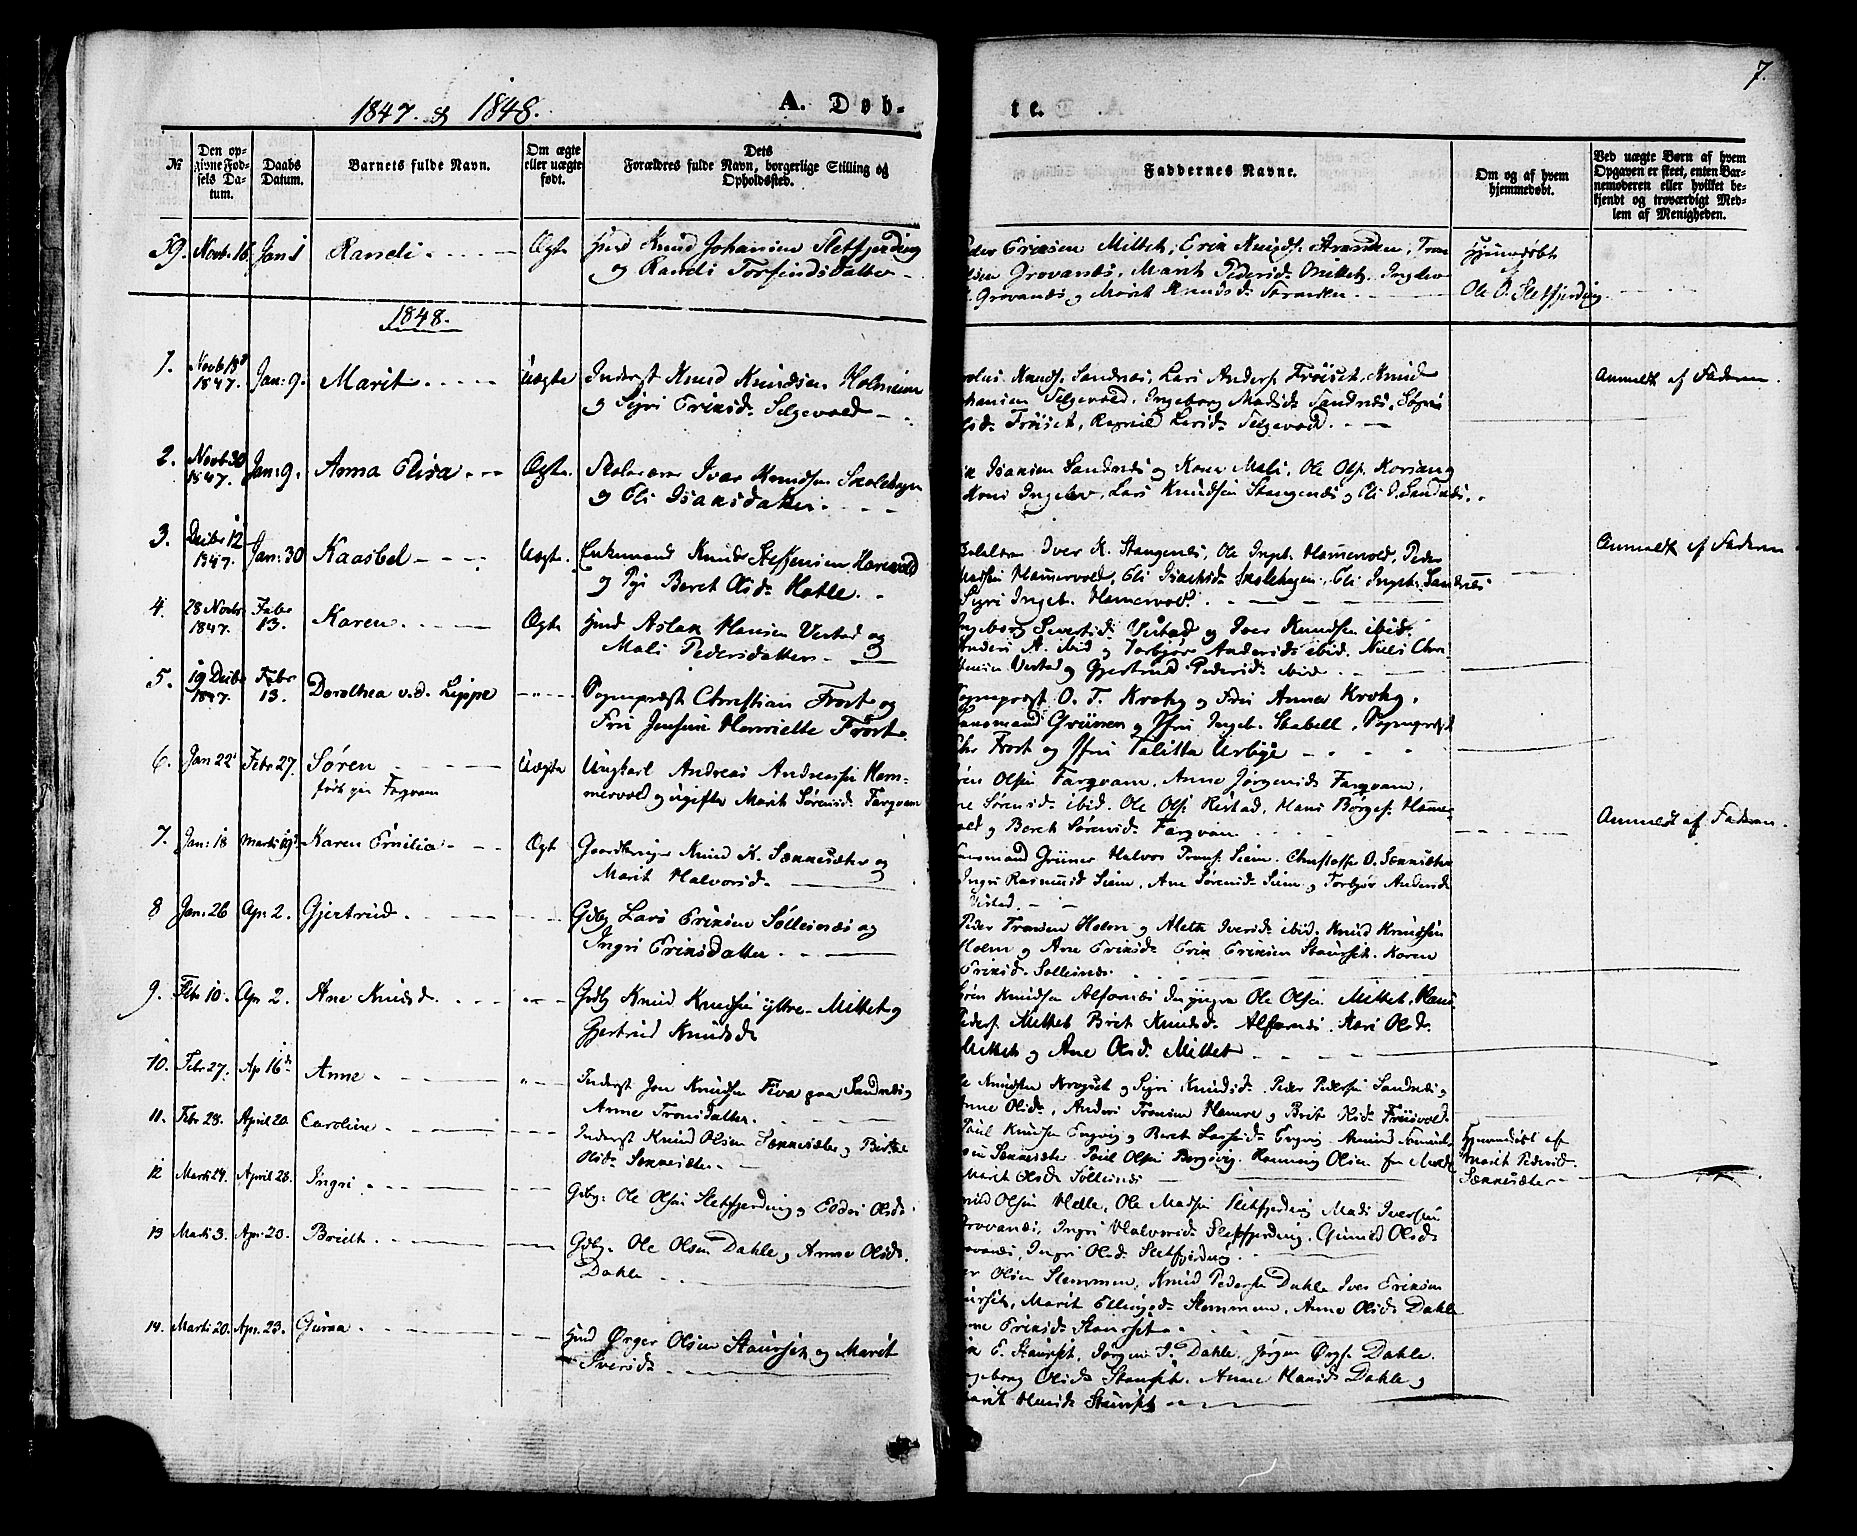 1847. & 1848.
A. Døb-
te.
7.
№
Den op-
givne Fød-
sels Da-
tum.
Daabs
Datum.
Barnets fulde Navn.
Om ægte
eller uægte
født.
Dets
Forældres fulde Navn, borgerlige Stilling og
Opholdssted.
Faddernes Navne.
Om og af hvem
hjemmedøbt.
Ved uægte Børn af hvem
Opgaven er skeet, enten Bar-
nemoderen eller hvilket be-
kjendt og troværdigt Med-
lem af Menigheden.
39. Novb. 16 Jan 1 Randi Ægte Hmd Knud Johansen Sletfjerding
og Randi Torfindsdatter
Eriksen Mittet, Erik Knuds.
Grovanæs, Marit Pedersd. Mittet, Ingebor
Grovanæs og Marit Knudsd.
Hjemmedøbt
af
Ole O. Sletfjerding
1848.
1. Novb 18 1847. Jan: 9. Marit Uægte Inderst Knud Knudsen Holmeim
og Sigri Eriksd. Selgevold
Knuds. Sandnæs, Lars Anders. Frøiset, Knud
Johansen Selgevold, Ingeborg Madsd. Sandnæs,
Frøiset, Ragnild Larsd. Selgevold.
Anmeldt af Faderen.
2. Novb 30 1847. Jan: 9. Anna Elisa Ægte. Skolelærer Ivar Knudsen Skolehagen
og Eli Isaksdatter.
Isaksen Sandnæs og Kone Mali, Ole Ols.
Kone Ingebor, Lars Knudsen Stangenæs og Eli I. Sandnæs.
3. Decbr 12 1847. Jan: 30 Kaasbel Uægte. Enkemand Knud Steffensen Harevold
og Pige Beret Olsd. Hatle.
Iver K. Stangenæs, Ole Ingeb. Hamervold, Peder
Madsen Hamervold, Eli Isaksd. Skolehagen, Eli Ingebr. Sandnæs
Sigri Ingeb. Hamervold.
Anmeldt af Faderen
4. 28 Novbr 1847. Febr 13. Karen Ægte Hmd Aslak Hansen Vestad og
Mali Pedersdatter
Ingeborg Sivertsd. Vestad og Iver Knudsen ibid.
Anders A. ibid og Torbjør Andersd. ibid. Niels Chri-
stensen Vestad og Gjertrud Pedersd. ibid.
5. 19 Decbr 1847. Febr 13. Dorothea v. d. Lippe Sognepræst Christian Frost og
Fru Jensine Henriette Frost.
Sognepræst O. T. Krohg og Fru Anna Krohg,
Lensmand Grüner og Jfru Ingeb. Skabell, Sognepræst
Frost og Jfru Talitta Urbye
6. Jan 22 Febr 27. Søren Uægte Ungkarl Andreas Andreassen Ham-
født paa Fargvam
mervold og ugifte Marit Sørensd. Fargvam
Søren Olsen Fargvam, Anne Jørgensd. Fargvam,
Sørensd. ibid. Ole Ols. Restad, Hans Børges. Hamer-
vold og Beret Sørensd. Fargvam
Anmeldt af Faderen.
7. Jan: 18 Marts 19. Karen Emilia Ægt Gaardbruger Knud K. Sønnesæter og
Marit Halvorsd.
Lensmand Grüner Halvor Siem. Christoffer O. Sønnesæter
Ingri Rasmusd Siem, Ane Sørensd. Siem og Torbjør Andersd
Vestad.
8 Jan: 26 Apr. 2. Gjertrud. Gdbg Lars Eriksen Sølleisnæs og
Ingri Eriksdatter
Peder Tronsen Holm og Aleth Iversd. ibid. Knud Knudsen
Holm og Ane Eriksd. Erik Eriksen Staurset. Karen
Eriksd. Sølleisnæs.
9. Febr 10. Apr 2. Ane Knudsd. Gdbg Knud Knudsen yttre Mittet og
Gjertrud Knudsd.
Søren Knudsen Alfarnæs Ole Olsen Mittet, Hans
Peders. Mittet Brit Knudsd. Alfarnæs, Kari Olsd.
Mittet og Ane Olsd. Mittet
10. Febr 27. Ap 16 Anne Inderst Jon Knudsen Fiva paa Sandnæs og
Anne Tronsdatter.
Ole Knudsen og Sigri Knudsd. Peder Peders. Sandnæs og
Anne Olsd., Anders Tronsen Hamre og Brit
11. Febr 28. April 20. Caroline Inderst Knud Olsen Sønnesæter og Birthe
Olsd. Sønnesæter.
Poul Knudsen Engvig og Beret Engvig
Sønnesæter Poul Olsen Bergsvig. Henning Olsen fra Molde
Marit Olsd. Sølleisnæs
Hjemmedøbt af
Marit Pedersd.
Sønnesæter
12 Marts 24. April 23. Ingri Gdbg. Ole Olsen Sletfjerding og Olsd.
Knud Olsen Helle, Ole Madsen Sletfjerding Mads Iversen
Grovanæs, Ingri Halvorsd. Sletfjerding, Gunild Olsd.
Grovanæs, Ingri Olsd. Sletfjerding
13 Marts 3. Apr: 20. Brieth Gdbg. Ole Olsen Dahle og Anne Olsd.
Dahle
Olsen Stemmen, Knud Peders. Dahle Iver Eriksen
Staurset, Marit Ellingsd. Stemmen, Anne Olsd. Dahle
Eriksd. Staurset.
14. Marts 20. Apr. 23. Guraa Hmd Ørger Olsen Staurset og Marit
Iversd.
E. Staurset, Jørgen I. Dahle, Jørgen Ørgs. Dahle.
Ingeborg Olsd. Staurset. Anne Hansd. Dahle og
Marit Staurset